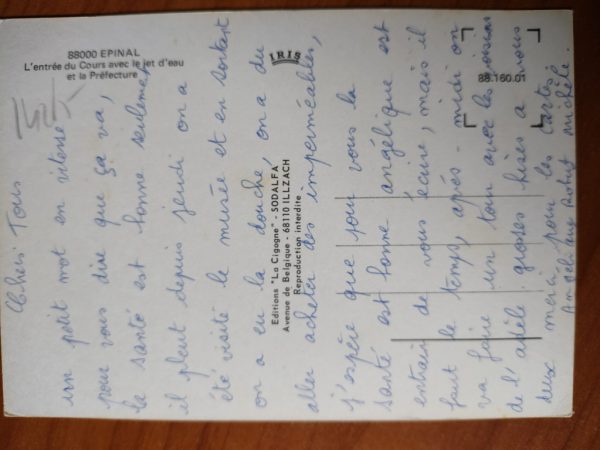 88000 EPINAL
L'entrée du Cours avec le jet d'eau
et la Préfecture
IRIS
88.160.01
Editions "La Cigogne" - SODALFA
Avenue de Belgique - 68110 ILLZACH
Reproduction interdite
Chers Tous
un petit mot en vitesse
pour vous dire que ça va,
la santé est bonne seulement
il pleut depuis jeudi on a
été visité le musée et en sortant
on a eu la douche, on a du
aller acheter des imperméables,
j'espère que pour vous la
santé est bonne angélique est
entrain de vous écrire, mais il
faut le temps, après-midi on
va faire un tour avec les voisins
de l' grosses bises a vous
deux merci pour les cartes
Angélique michèle.